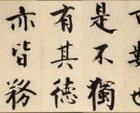 也
是不獨
有其德
亦皆務